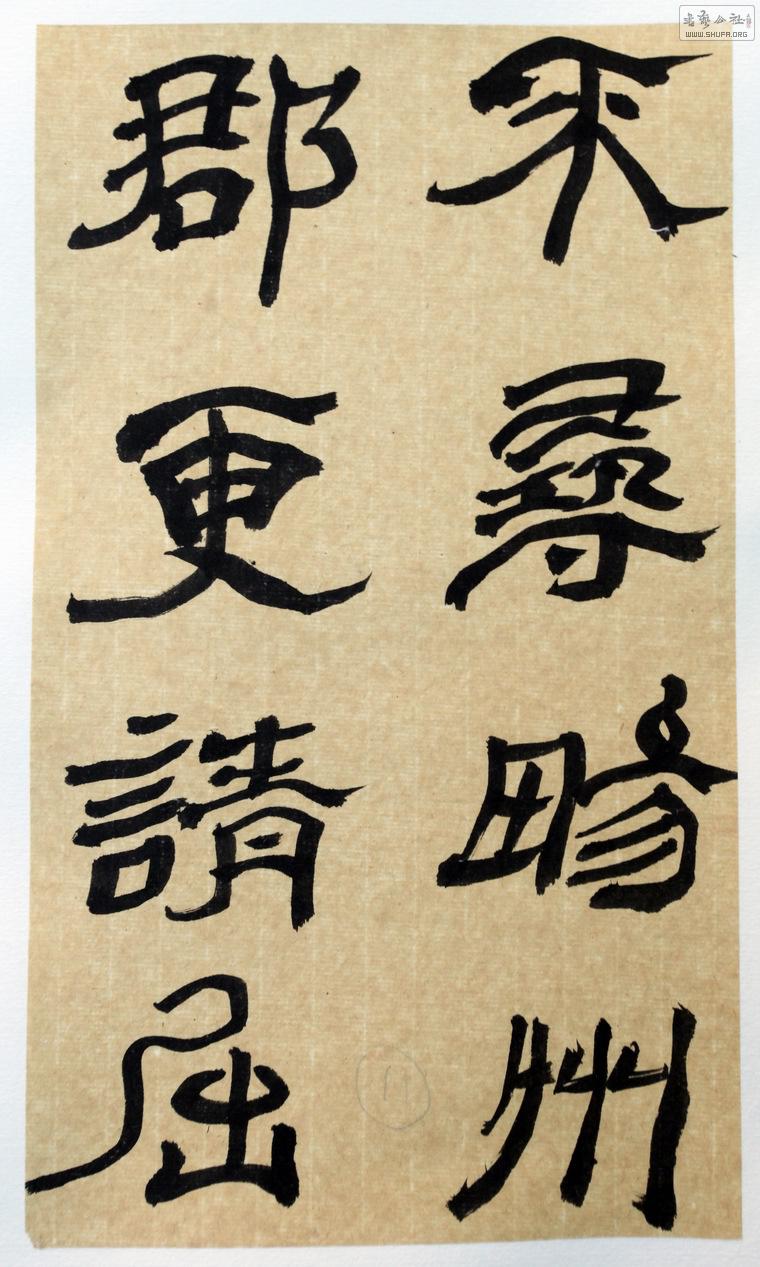 不尋畼州
郡更請屈
书艺公社
WWW.SHUFA.ORG
11